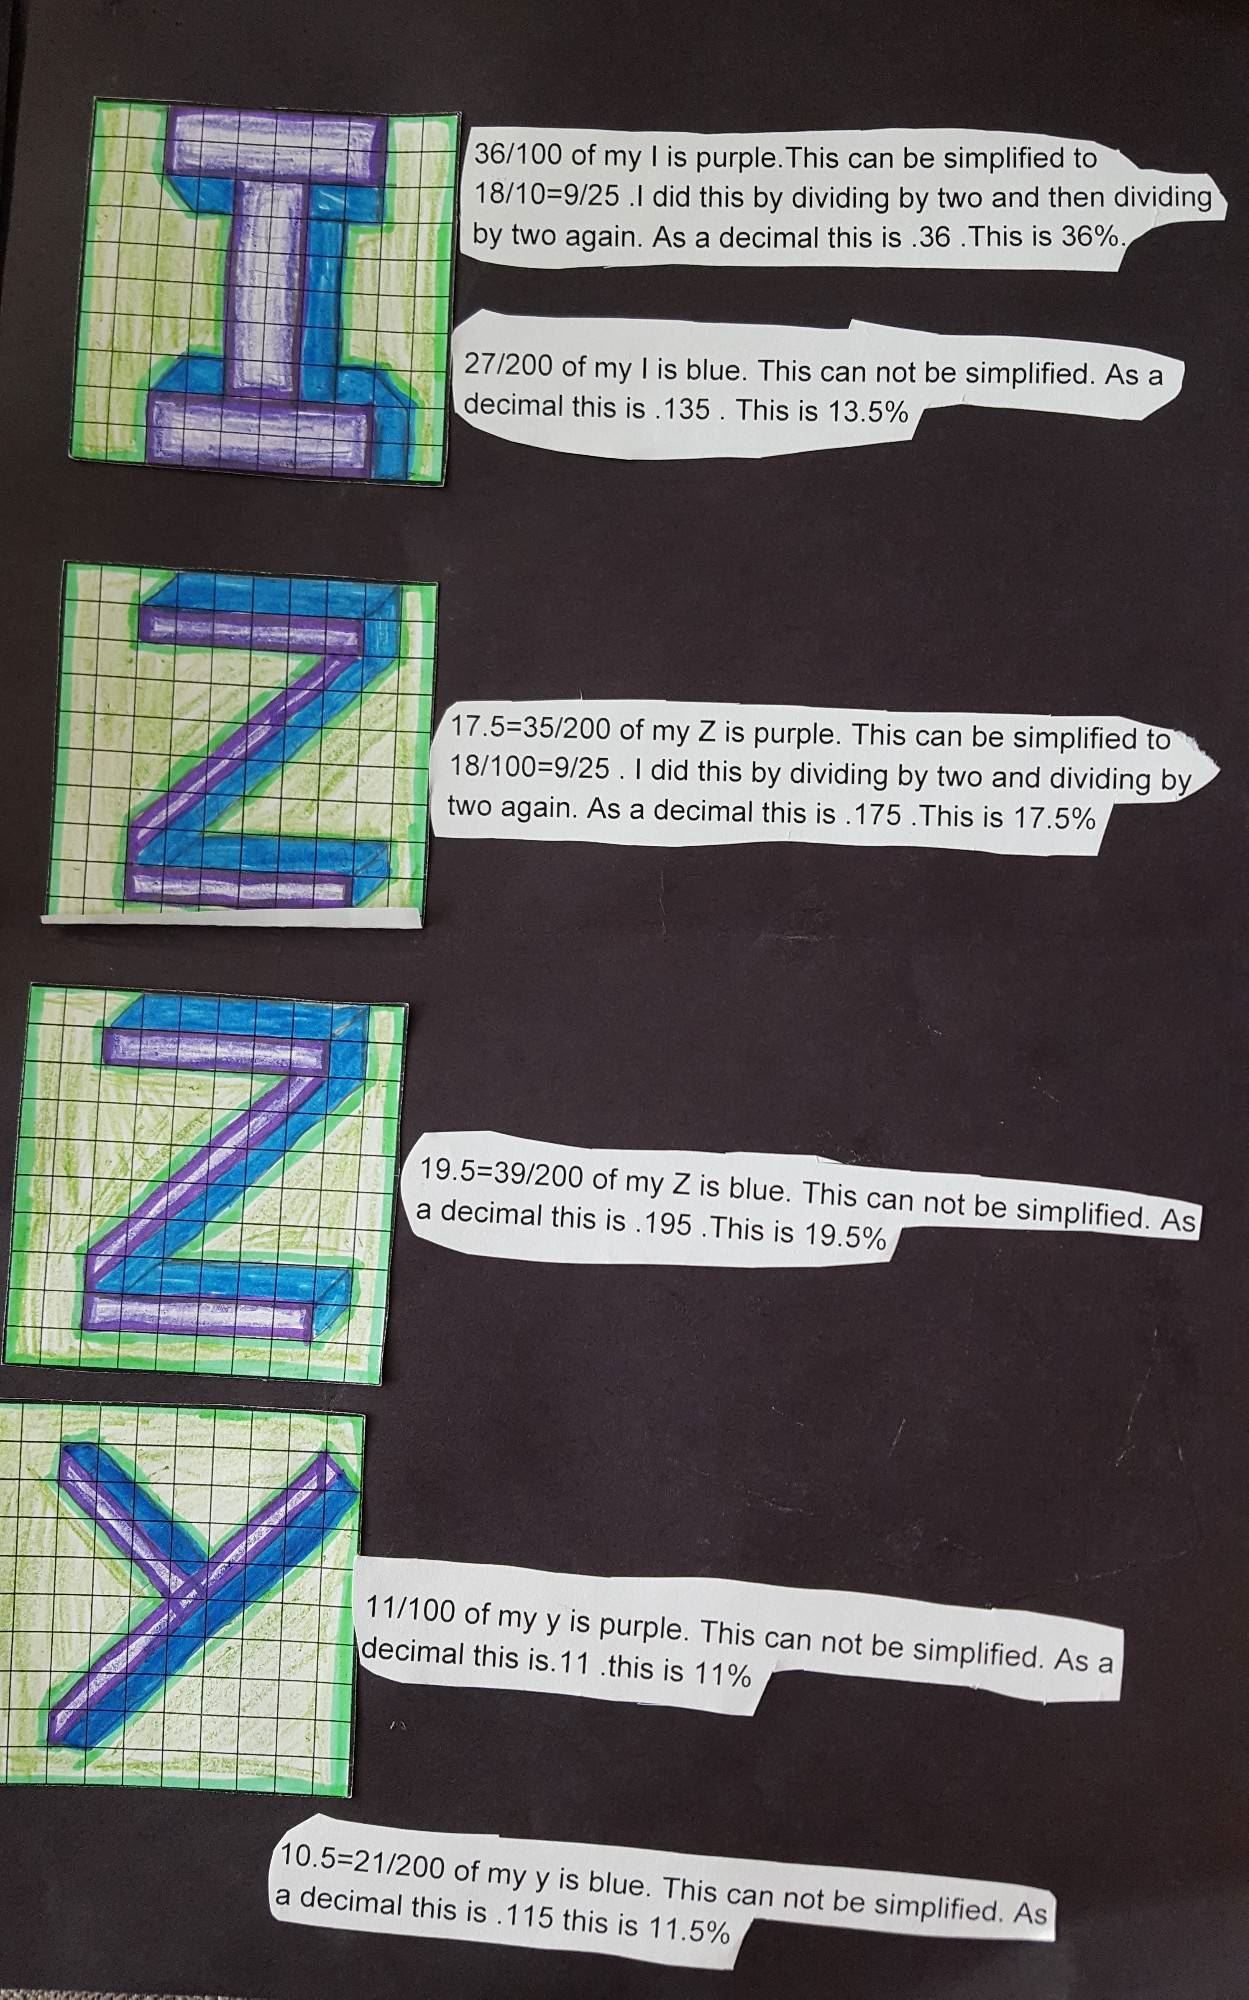 36/100 of my I is purple.This can be simplified to
18/10=9/25 .I did this by dividing by two and then dividing
by two again. As a decimal this is .36 .This is 36%.
27/200 of my I is blue. This can not be simplified. As a
decimal this is .135 . This is 13.5%
17.5=35/200 of my Z is purple. This can be simplified to
18/100=9/25 . I did this by dividing by two and dividing by
two again. As a decimal this is .175 .This is 17.5%
19.5=39/200 of my Z is blue. This can not be simplified. As
a decimal this is .195 .This is 19.5%
11/100 of my y is purple. This can not be simplified. As a
decimal this is.11 .this is 11%
10.5=21/200 of my y is blue. This can not be simplified. As
a decimal this is .115 this is 11.5%